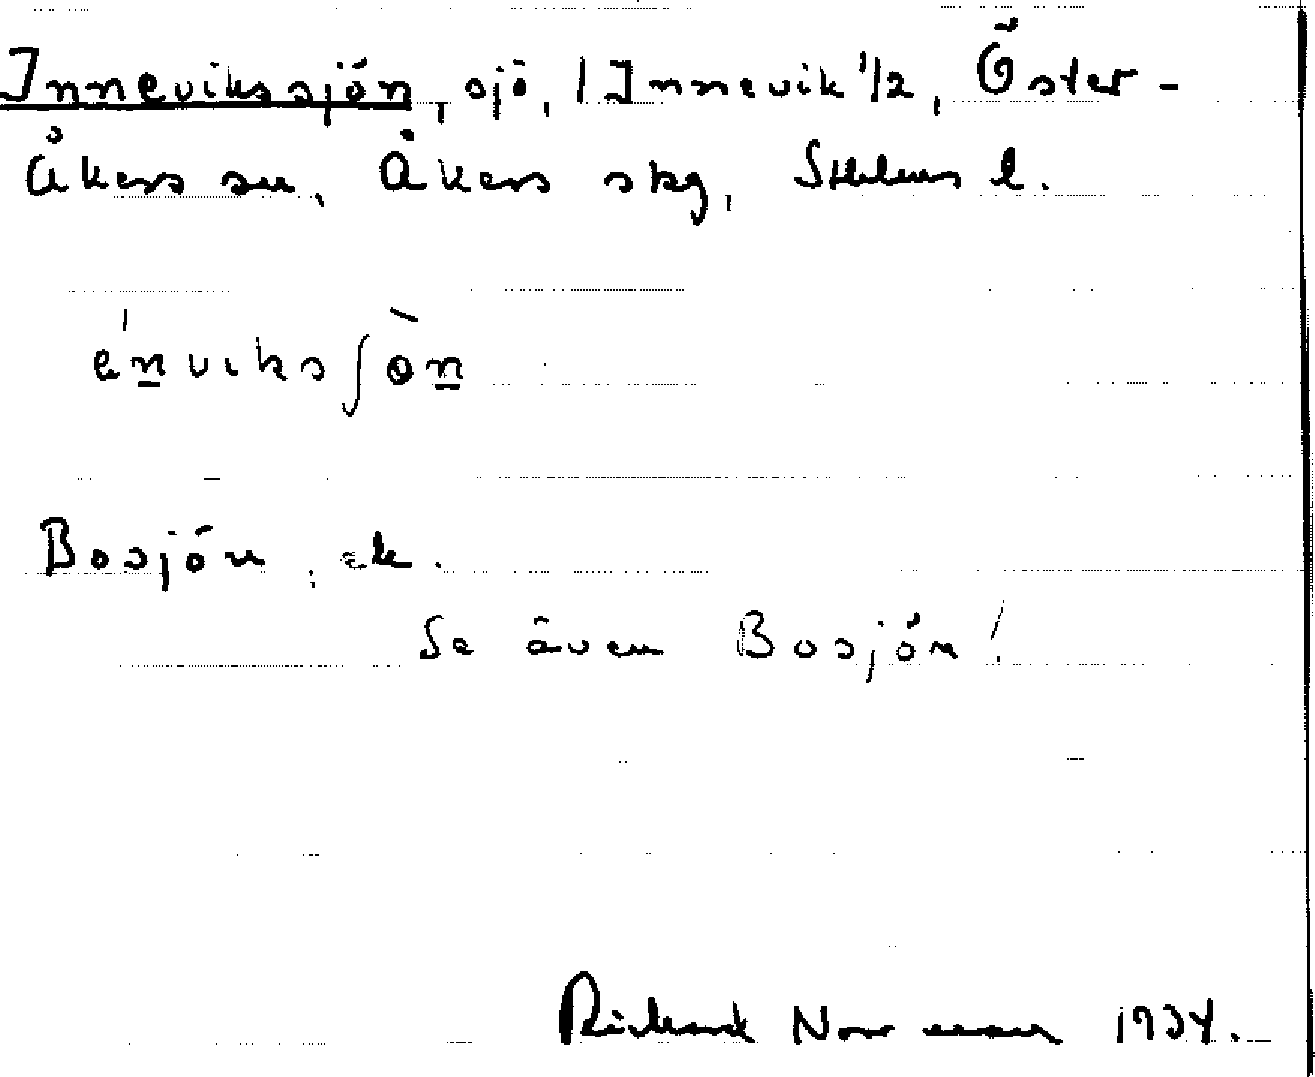 Innevikssjön, sjö, / Innevik 1/2, Öster-
Åkers sn, Åkers skg, Sthlms l.
énviksʃòn
Bosjön, ek.
Se även Bosjön!
Rickard Norrman 1934.